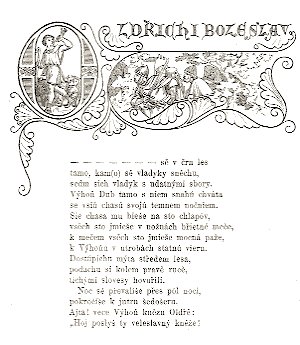 OLDŘICH I BOLESLAV
— — — — — — — — sě v črn les
tamo, kam(o) sě vladyky sněchu,
sedm sich vladyk s udatnými sbory.
Výhoň Dub tamo s niem snahú chváta
se vsiú chasú svojú temnem nočniem.
Sie chasa mu bieše na sto chlapóv,
vsěch sto jmieše v nožnách břietné meče,
k mečem vsěch sto jmieše mocná paže,
k Výhoňu v utrobách statnú vieru.
Dostúpichu mýta středem lesa,
podachu si kolem pravé ruce,
tichými slovesy hovořili.
Noc sě převalíše přes pól noci,
pokročíše k jutru šedošeru.
Ajta! vece Výhoň knězu Oldře:
„Hoj poslyš ty veleslavný kněže!